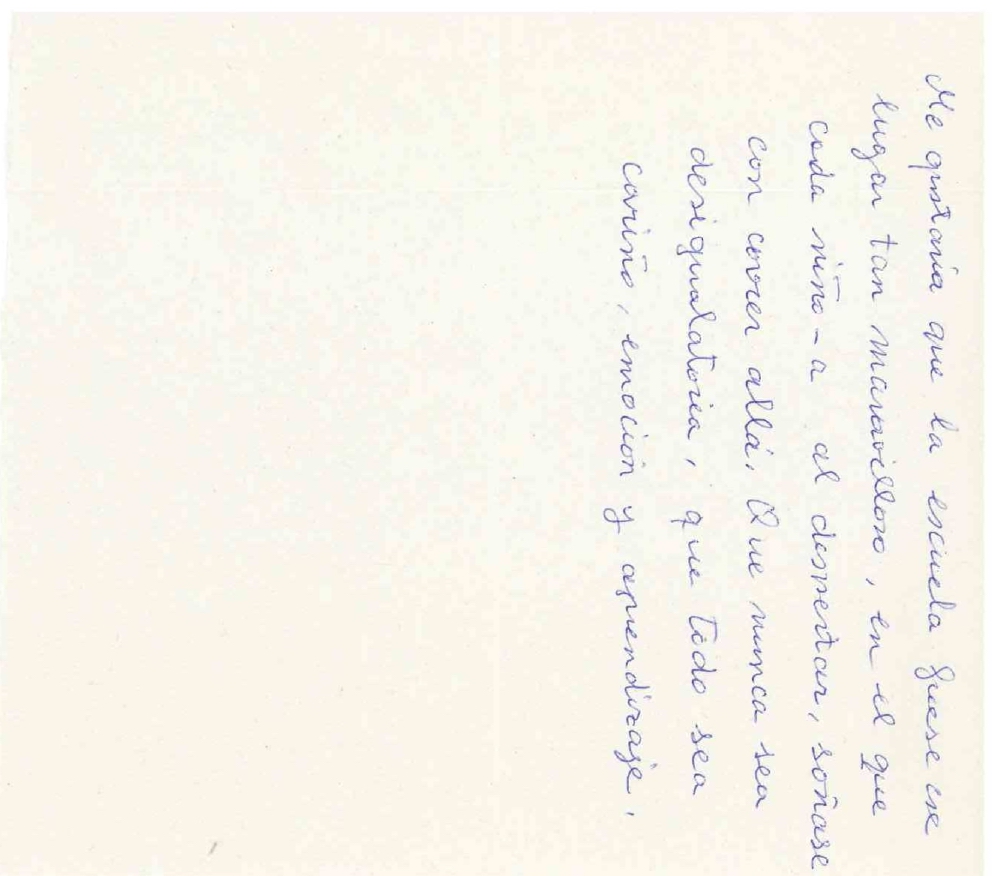 Me gustaría que la escuela fuese ese
lugar tan maravilloso, en el que
cada niño-a al despertar, soñase
con correr allá. Que nunca sea
desigualatoria, que todo sea
cariño, emoción y aprendizaje.